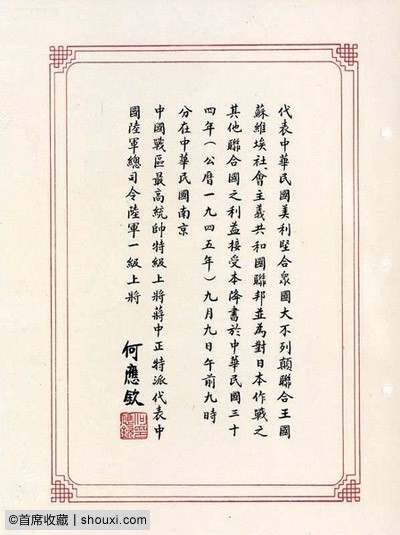 代表中華民國美利堅合眾國大不列顛聯合王國
蘇維埃社會主義共和國聯邦並為對日本作戰之
其他聯合國之利益接受本降書於中華民國三十
四年（公曆一九四五年）九月九日午前九時
分在中華民國南京
中國戰區最高統帥特級上將蔣中正特派代表中
國陸軍總司令陸軍一級上將
何應欽
©首席收藏 | shouxi.com